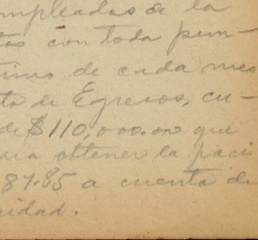 mpleados de la
tos con toda pun-
timo de cada mes
to de Egresos, cu-
de $110,000.00 que
ra obtener la paci
87.85 a cuenta de
idad.